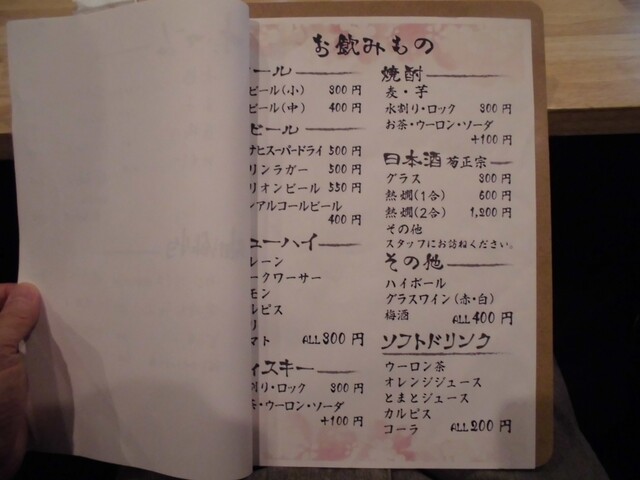 お飲みもの
ール
ビール(小) 300円
ビール(中) 400円
ビール
ナヒスーパードライ 500円
リンラガー 500円
リオンビール 550円
ンアルコールビール
400円
ューハイ
レーン
ークワーサー
モン
ルピス
リ
マト ALL300円
ィスキー
割り・ロック 300円
茶・ウーロン・ソーダ
+100円
焼酎
麦・芋
水割り・ロック 300円
お茶・ウーロン・ソーダ
+100円
日本酒 菊正宗
グラス 300円
熱燗(1合) 600円
熱燗(2合) 1,200円
その他
スタッフにお訪ねください。
その他
ハイボール
グラスワイン(赤・白)
梅酒 ALL400円
ソフトドリンク
ウーロン茶
オレンジジュース
とまとジュース
カルピス
コーラ ALL200円